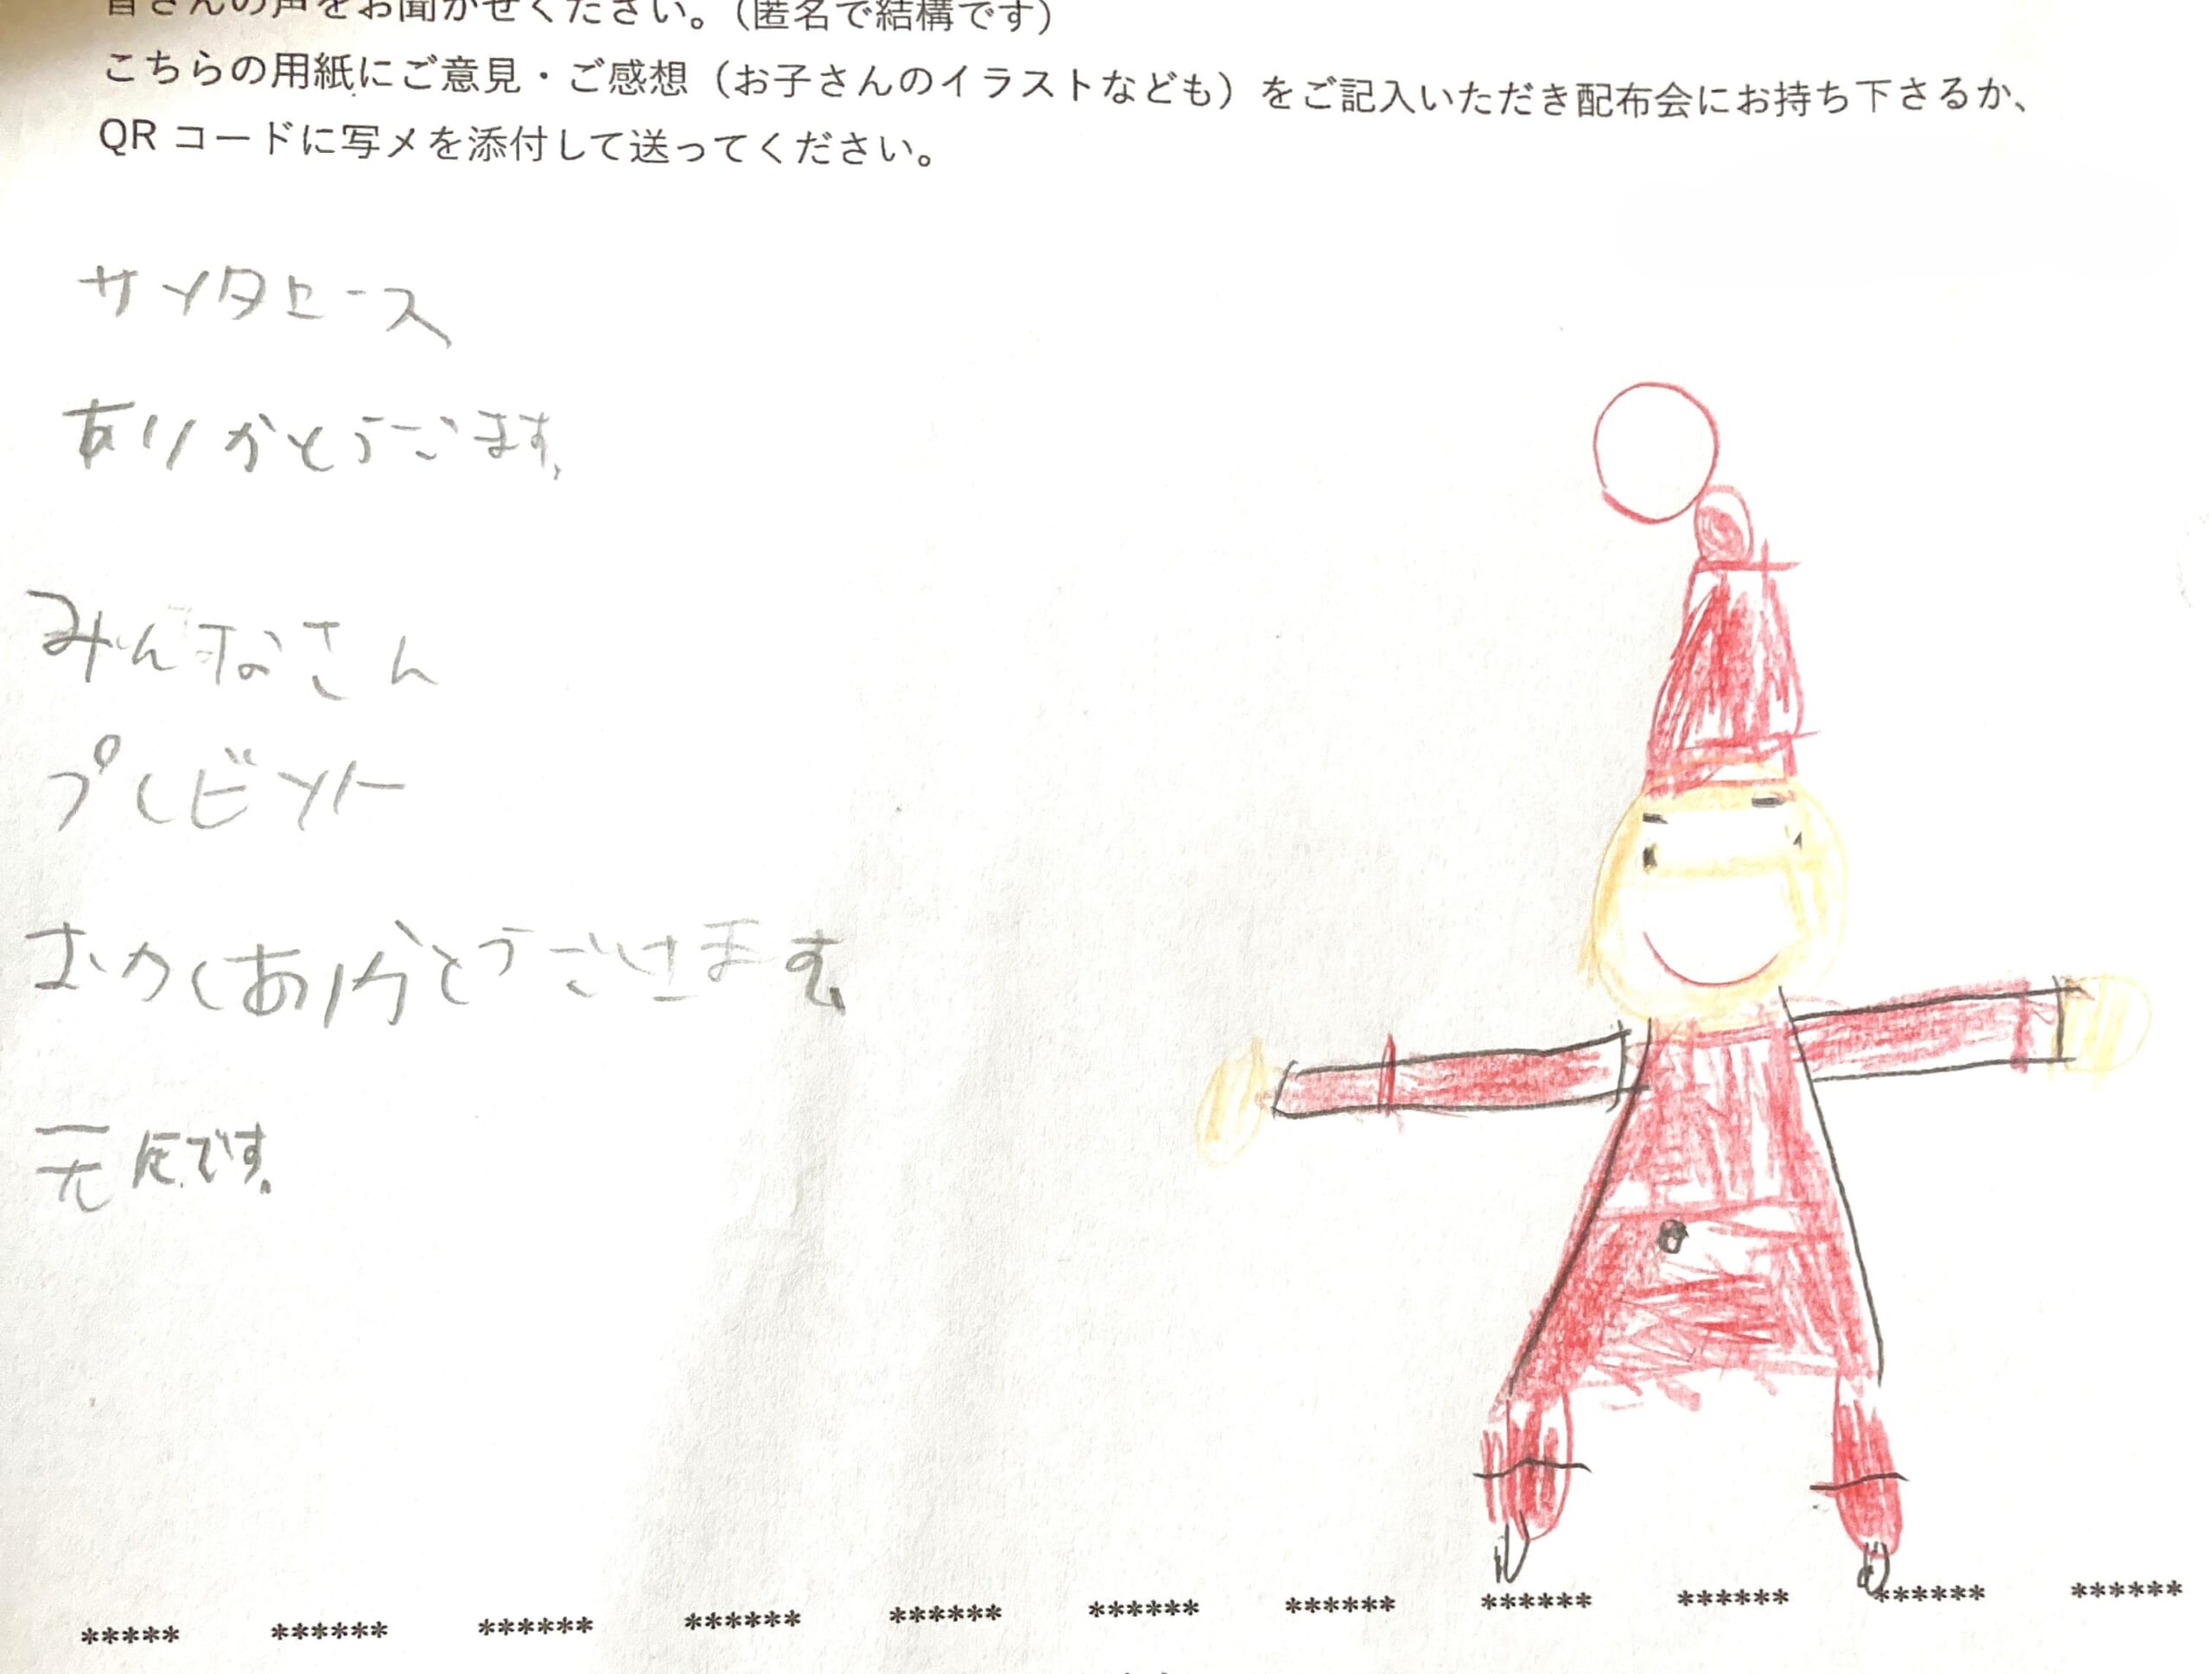 皆さんの声をお聞かせください。（匿名で結構です）
こちらの用紙にご意見・ご感想（お子さんのイラストなども）をご記入いただき配布会にお持ち下さるか、
QR コードに写メを添付して送ってください。
サンタロース
ありがとうございます。
みんなさん
プレビゾント
ありがとうございます
元気です。
***** ****** ****** ****** ****** ****** ****** ****** ****** ****** ******